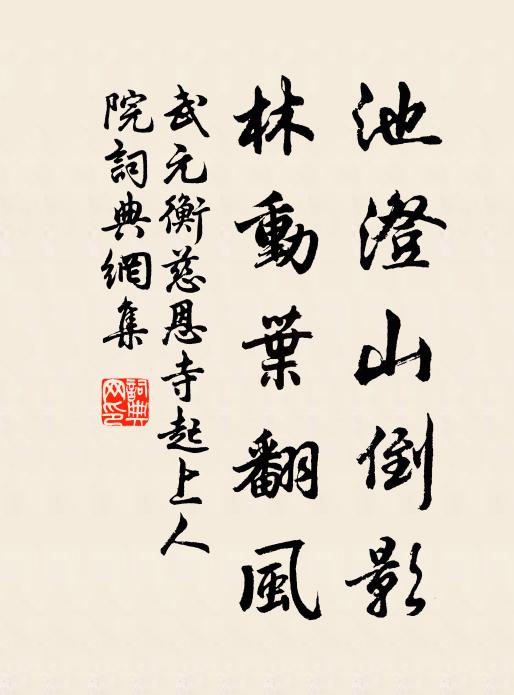 池澄山倒影
林動葉翻風
武元衡慈恩寺起上人
院詞典網集
詞典網印